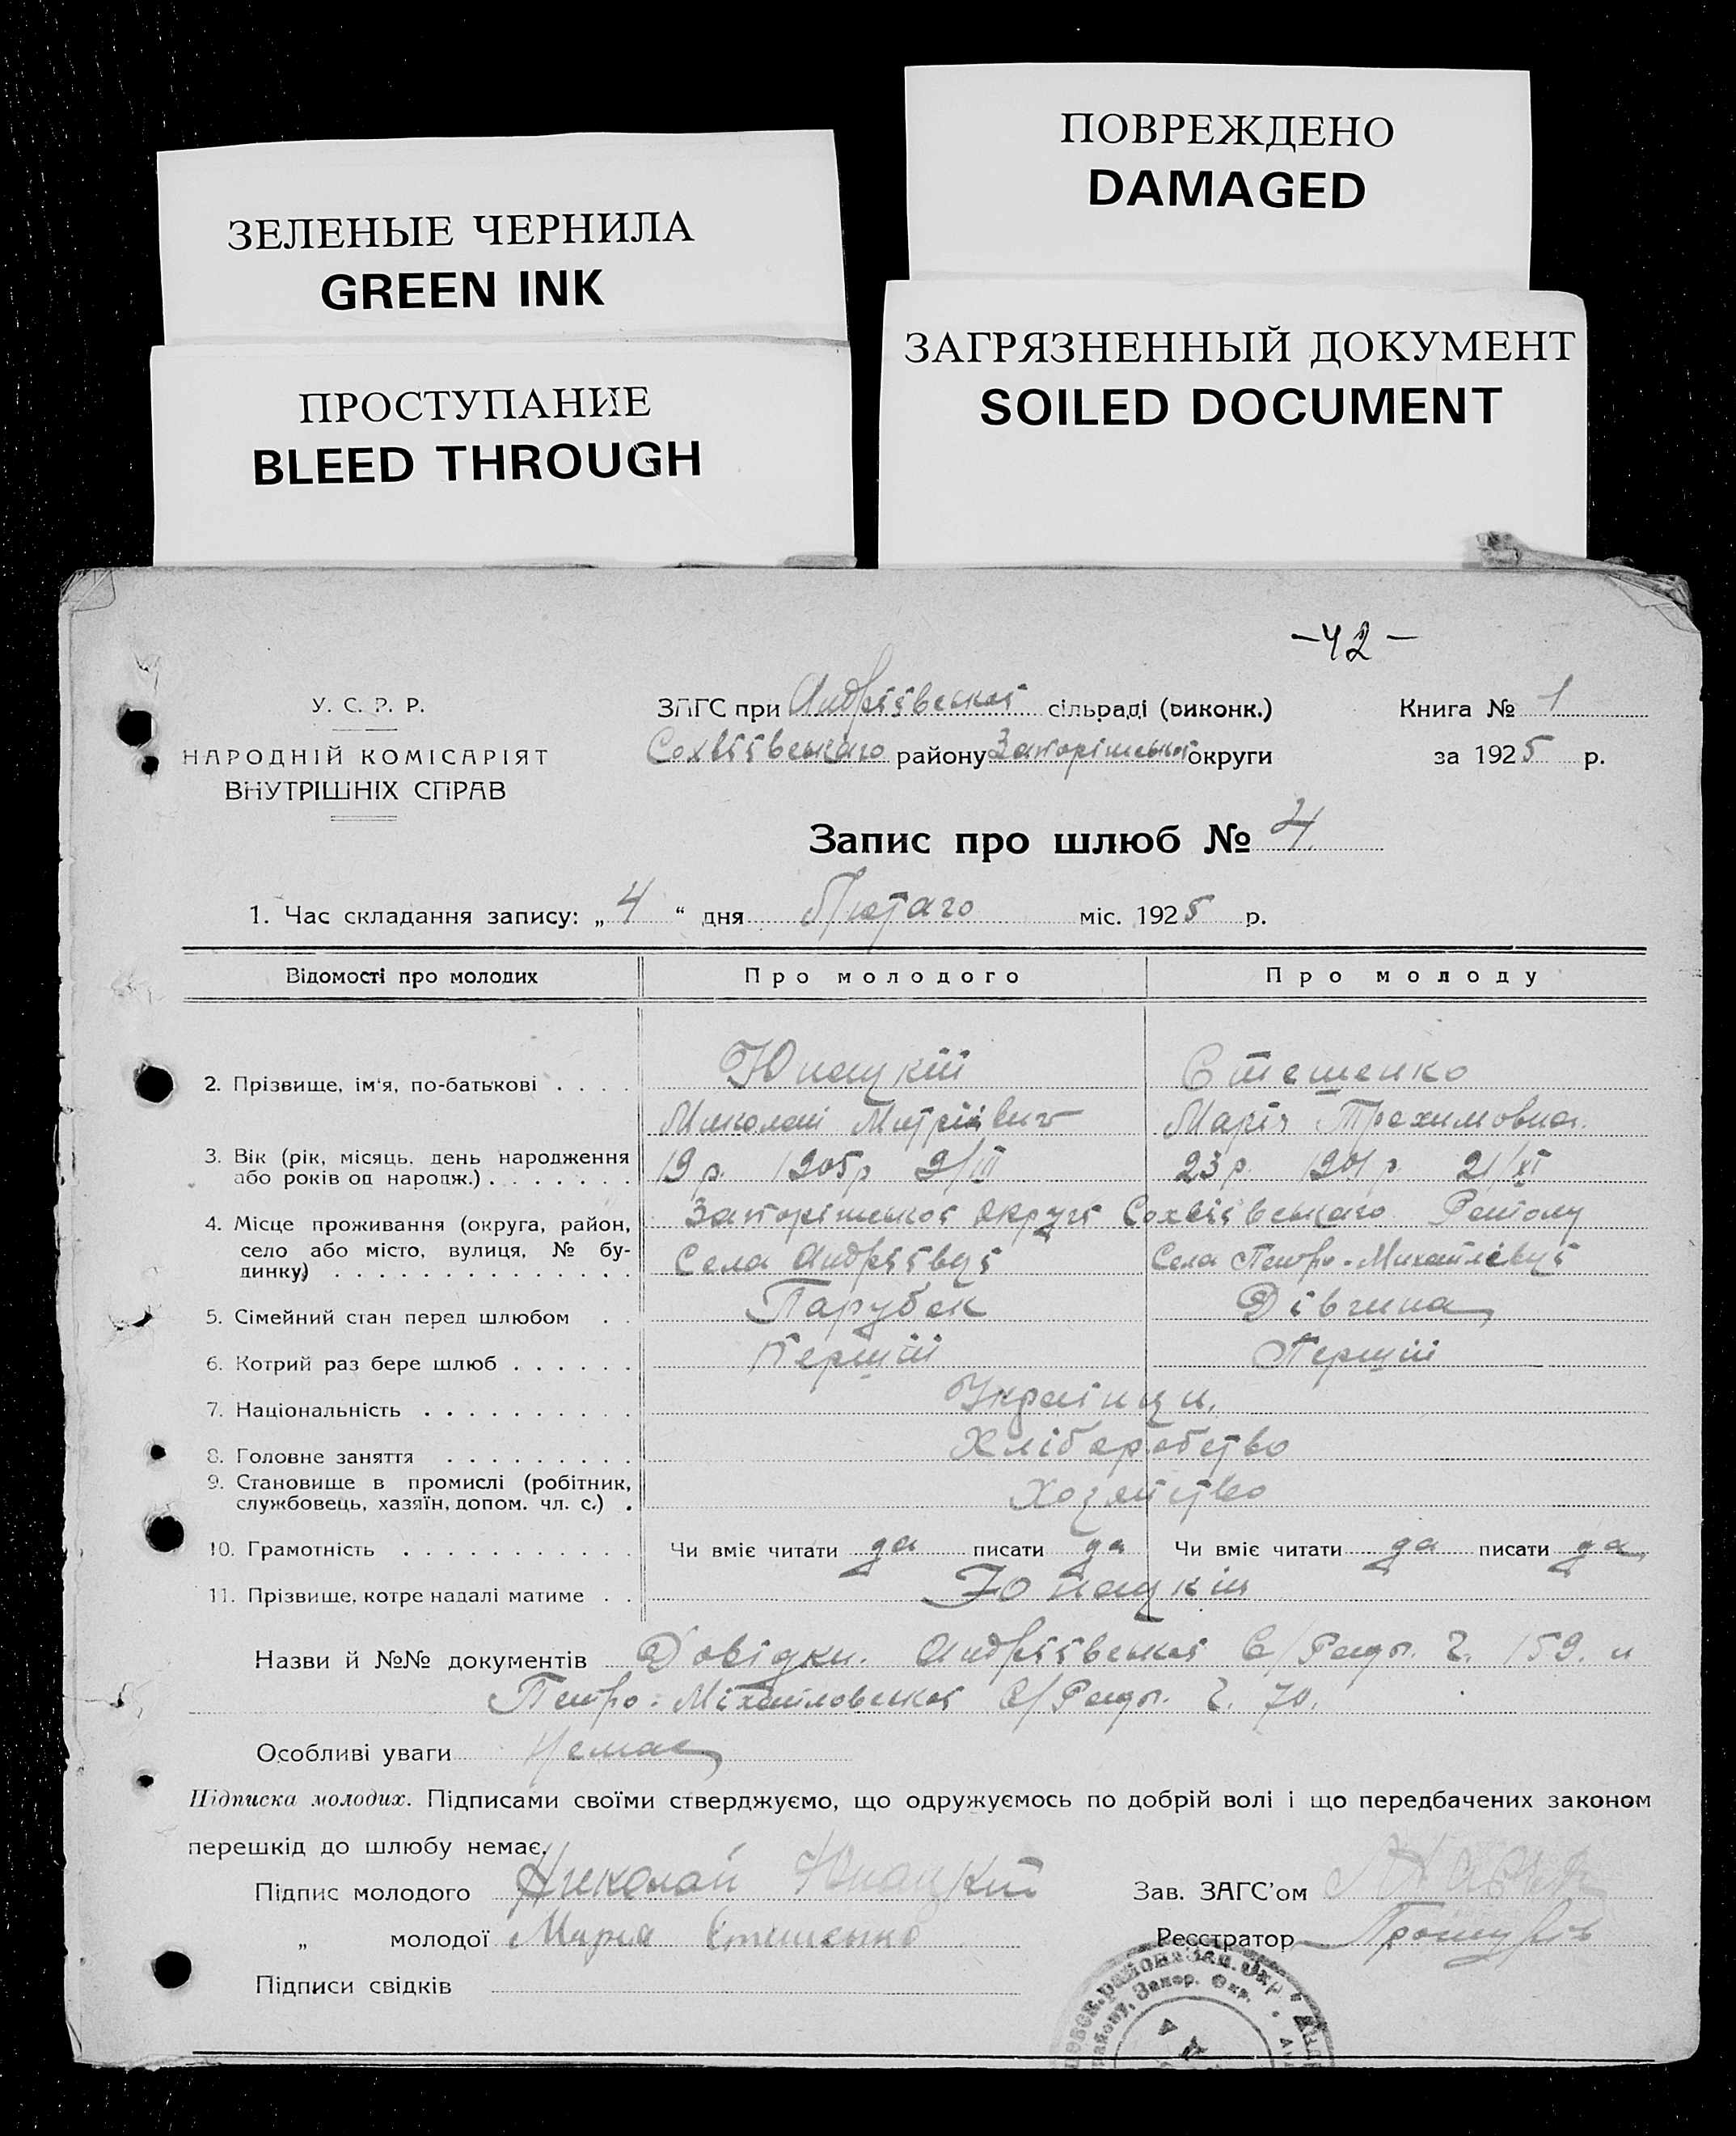 ПОВРЕЖДЕНО
DAMAGED
ЗЕЛЕНЫЕ ЧЕРНИЛА
GREEN INK
ЗАГРЯЗНЕННЫЙ ДОКУМЕНТ
SOILED DOCUMENT
ПРОСТУПАНИЕ
BLEED THROUGH
-42-
У. С. Р. Р.
НАРОДНІЙ КОМІСАРІЯТ
ВНУТРІШНІХ СПРАВ
ЗАГС при Андріївської сільраді (виконк.)
Софіївського району Запоріжської округи
Книга № 1
за 1925 р.
Запис про шлюб № 4
1. Час складання запису: „ 4 “ дня Лютаго міс. 1925 р.
Відомості про молодих Про молодого Про молоду
2. Прізвище, ім'я, по-батькові . . . . Юнацкій Стешенко
Миколай Митрійвич Марія Трохимовна
3. Вік (рік, місяць, день народження або років од народж.) . . . . . . . 19 р. 1905 р 9/III 23 р. 1901 р. 21/XI
4. Місце проживання (округа, район, село або місто, вулиця, № будинку) . . . . . . . . . . . . . . Запоріжської округи Софіївського Району
Села Андріївці Села Петро-Михайлівці
5. Сімейний стан перед шлюбом . . Парубок Дівчина
6. Котрий раз бере шлюб . . . . . . Першій Першій
7. Національність . . . . . . . . . . Українци.
8. Головне заняття . . . . . . . . . Хліборобство
9. Становище в промислі (робітник, службовець, хазяїн, допом. чл. с.) . Хозяйство
10. Грамотність . . . . . . . . . . . Чи вміє читати да писати да Чи вміє читати да писати да
11. Прізвище, котре надалі матиме . . Юнацкій
Назви й №№ документів Довідки. Андріївської С/Ради. Ч. 159. и
Петро-Міхайловської С/Ради. Ч. 70.
Особливі уваги Немає
Підписка молодих. Підписами своїми стверджуємо, що одружуємось по добрій волі і що передбачених законом
перешкід до шлюбу немає.
Підпис молодого Николай Юнацкій
Зав. ЗАГС'ом
„ молодої Мария Стешенко
Реєстратор
Підписи свідків
района Зап. Окр
району, Запор. Окр.